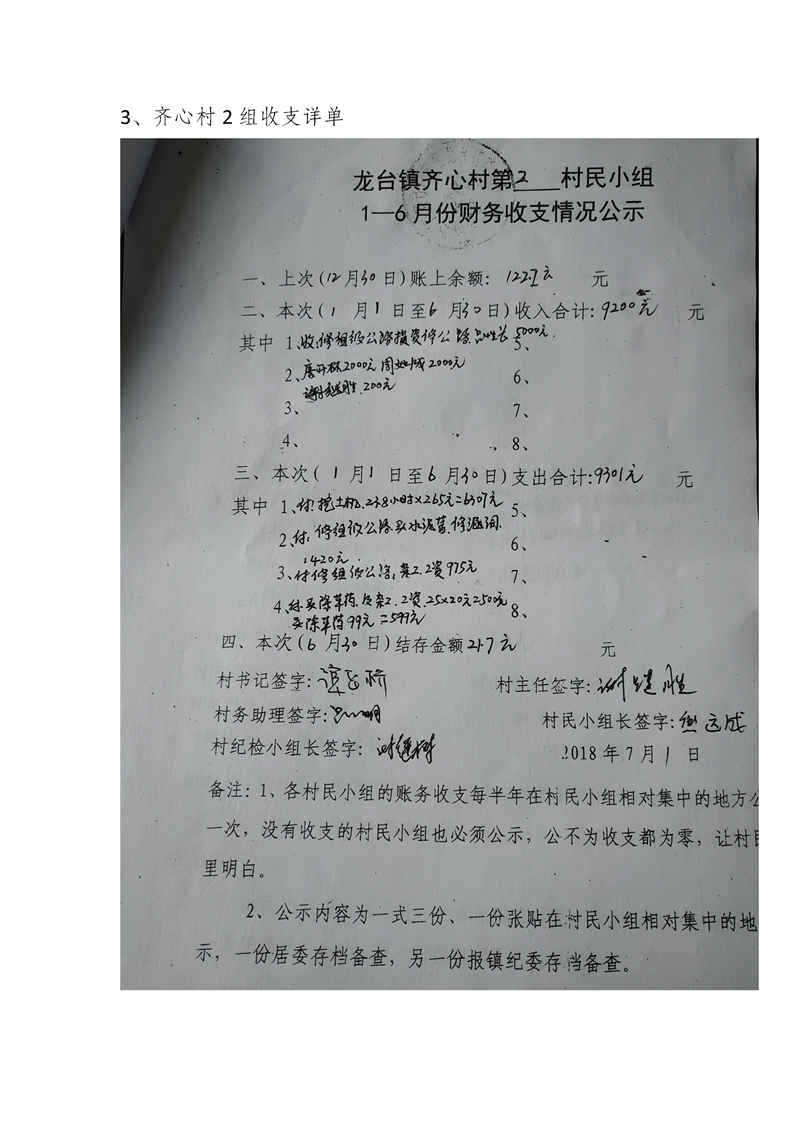 3、齐心村 2 组收支详单
龙台镇齐心村第2村民小组
1—6月份财务收支情况公示
一、上次(12月30日)账上余额: 元
二、本次(1月1日至6月30日)收入合计:9200元 元
其中 1、收:修组级公路投资修公路 5000元. 5、
2、2000元 周 2000元 6、
谢继胜.200元
3、 7、
4、 8、
三、本次(1月1日至6月30日)支出合计:9301元 元
其中 1、付挖土机.23.8小时×265元=6307元 5、
2、付:修组级公路买水泥管.修涵洞. 6、
1420元.
3、付修组级公路,杂工.工资975元 7、
4、付买除草药.及杂工.工资.25×20元=500元 8、
买除草药99元=599元
四、本次(6月30日)结存金额 元
村书记签字: 村主任签字:谢继胜
村务助理签字: 村民小组长签字:
村纪检小组长签字: 2018年7月1日
备注:1、各村民小组的账务收支每半年在村民小组相对集中的地方公
一次，没有收支的村民小组也必须公示，公不为收支都为零，让村民
里明白。
2、公示内容为一式三份、一份张贴在村民小组相对集中的地
示，一份居委存档备查，另一份报镇纪委存档备查。